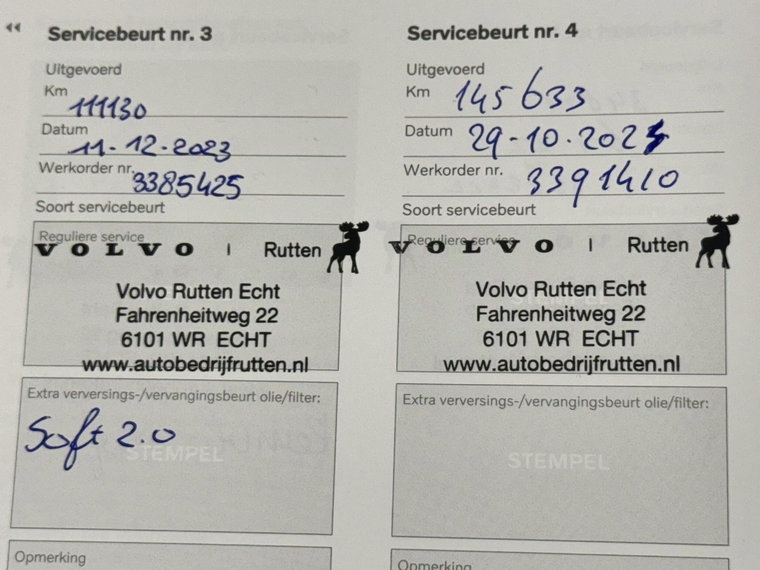 Servicebeurt nr. 3
Uitgevoerd
Km 111130
Datum 11-12-2023
Werkorder nr. 3385425
Soort servicebeurt
Reguliere service
VOLVO | Rutten
Volvo Rutten Echt
Fahrenheitweg 22
6101 WR ECHT
www.autobedrijfrutten.nl
Extra verversings-/vervangingsbeurt olie/filter:
Soft 2.0
STEMPEL
Opmerking
Servicebeurt nr. 4
Uitgevoerd
Km 145633
Datum
Werkorder nr. 3391410
Soort servicebeurt
Reguliere service
VOLVO | Rutten
STEMPEL
Volvo Rutten Echt
Fahrenheitweg 22
6101 WR ECHT
www.autobedrijfrutten.nl
Extra verversings-/vervangingsbeurt olie/filter:
STEMPEL
Opmerking